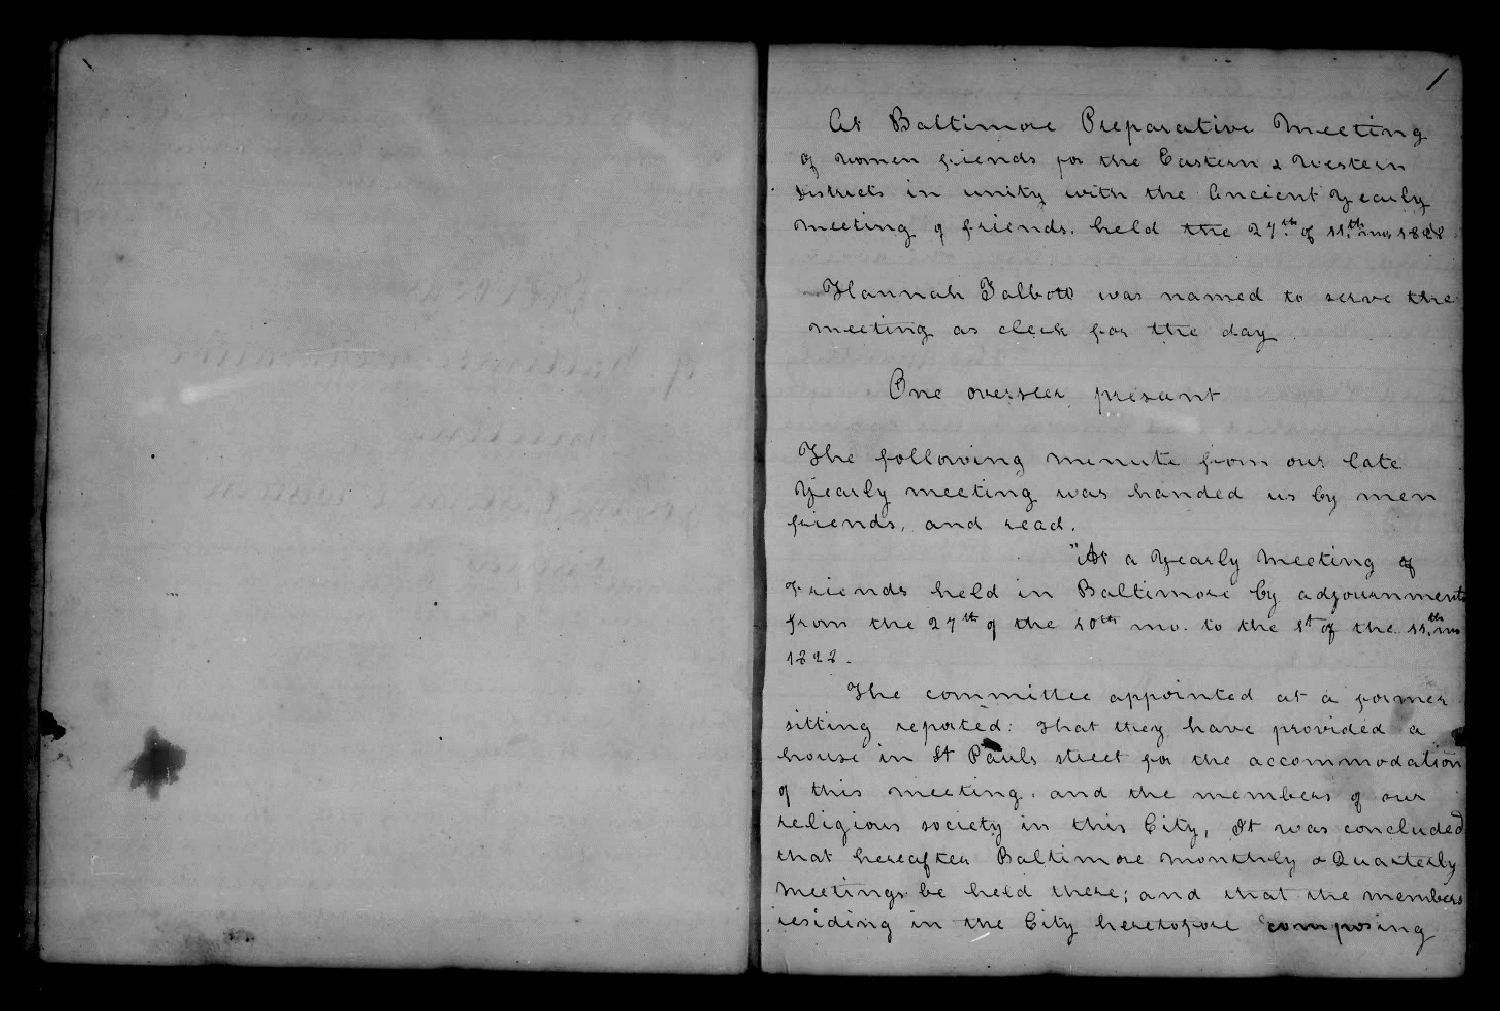 1
At Baltimore Preparative Meeting
of women friends for the Eastern & Western
Districts in unity with the Ancient Yearly
meeting of friends. held the 27th of 11th mo 1828
Hannah Talbott was named to serve the
meeting as clerk for the day
One overseer present
The following minute from our late
Yearly meeting was handed us by men
friends, and read.
"At a Yearly Meeting of
Friends held in Baltimore by adjournments
from the 27th of the 10th mo. to the 1st of the 11th mo
1828.
The committee appointed at a former
sitting reported: That they have provided a
house in St Pauls street for the accommodation
of this meeting. and the members of our
religious society in this City, It was concluded
that hereafter Baltimore Monthly & Quarterly
Meetings be held there; and that the members
residing in the City heretofore composing